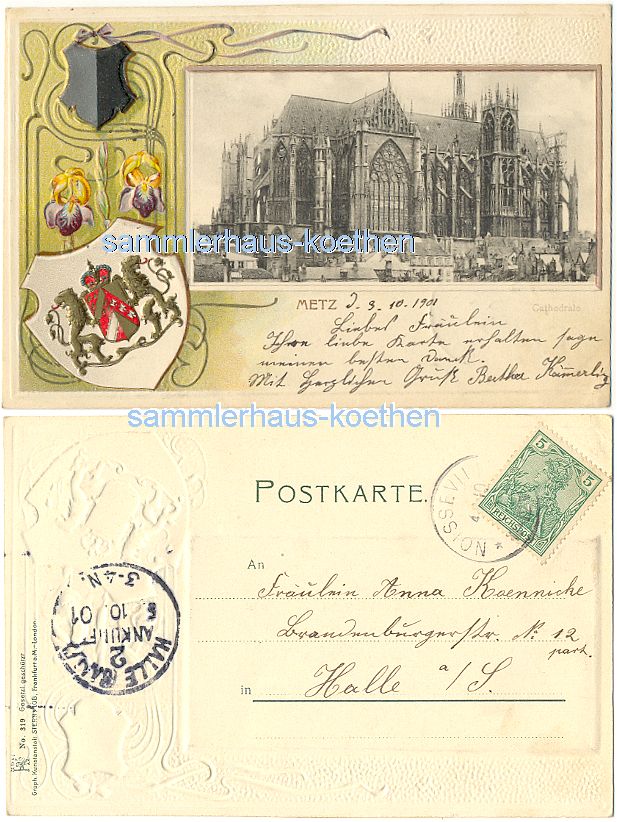 sammlerhaus-koethen
METZ d. 3. 10. 1901
Cathedrale
Liebes Fräulein
Ihre liebe Karte erhalten sage
meinen besten Danck.
Mit Herzlichen Gruß Bertha Kämerling
sammlerhaus-koethen
POSTKARTE.
NOISSEVILLE
5
An
Fräulein Anna Koennicke
Brandenburgerstr. No 12
part.
in Halle a/S.
HALLE (SAALE)
2
ANKUNFT
5. 10. 01
3-4 N.
No. 319 Gesetzl. geschützt
Graph. Kunstanstalt STERN & JOB, Frankfurt a. M.-London.